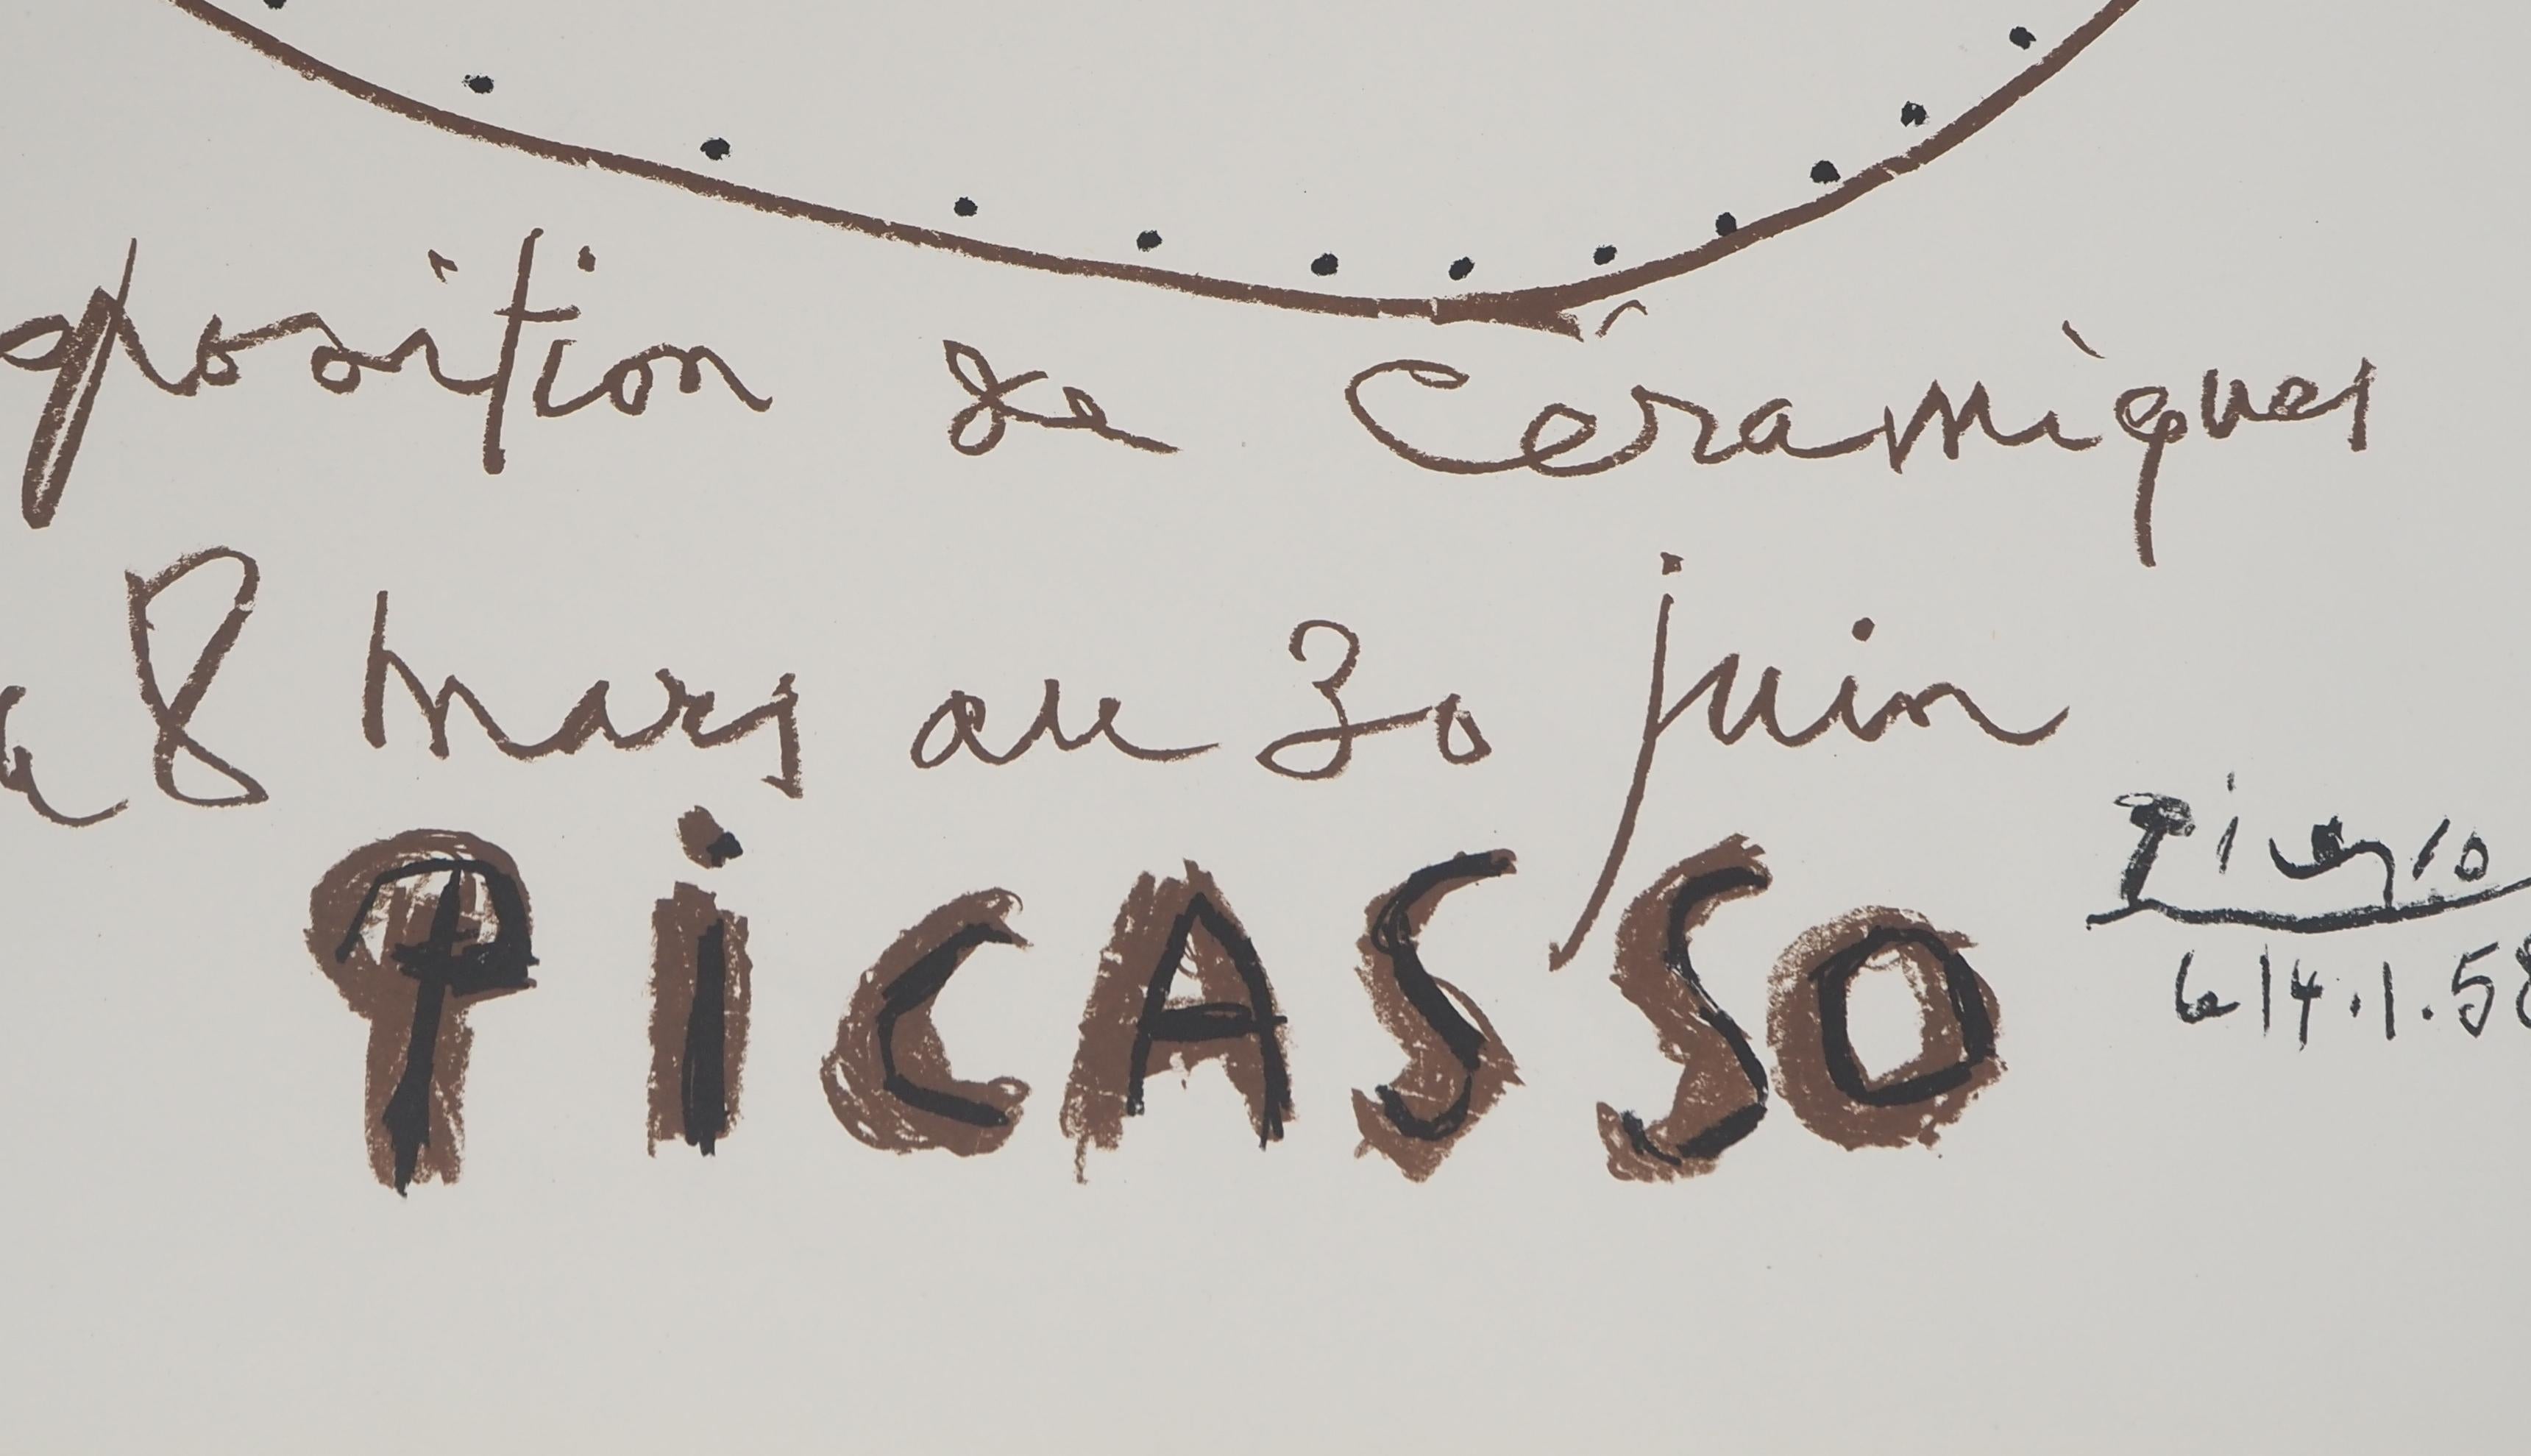 position de Céramiques
8 mars au 30 juin
PiCASSO
Picasso
le 14.1.58